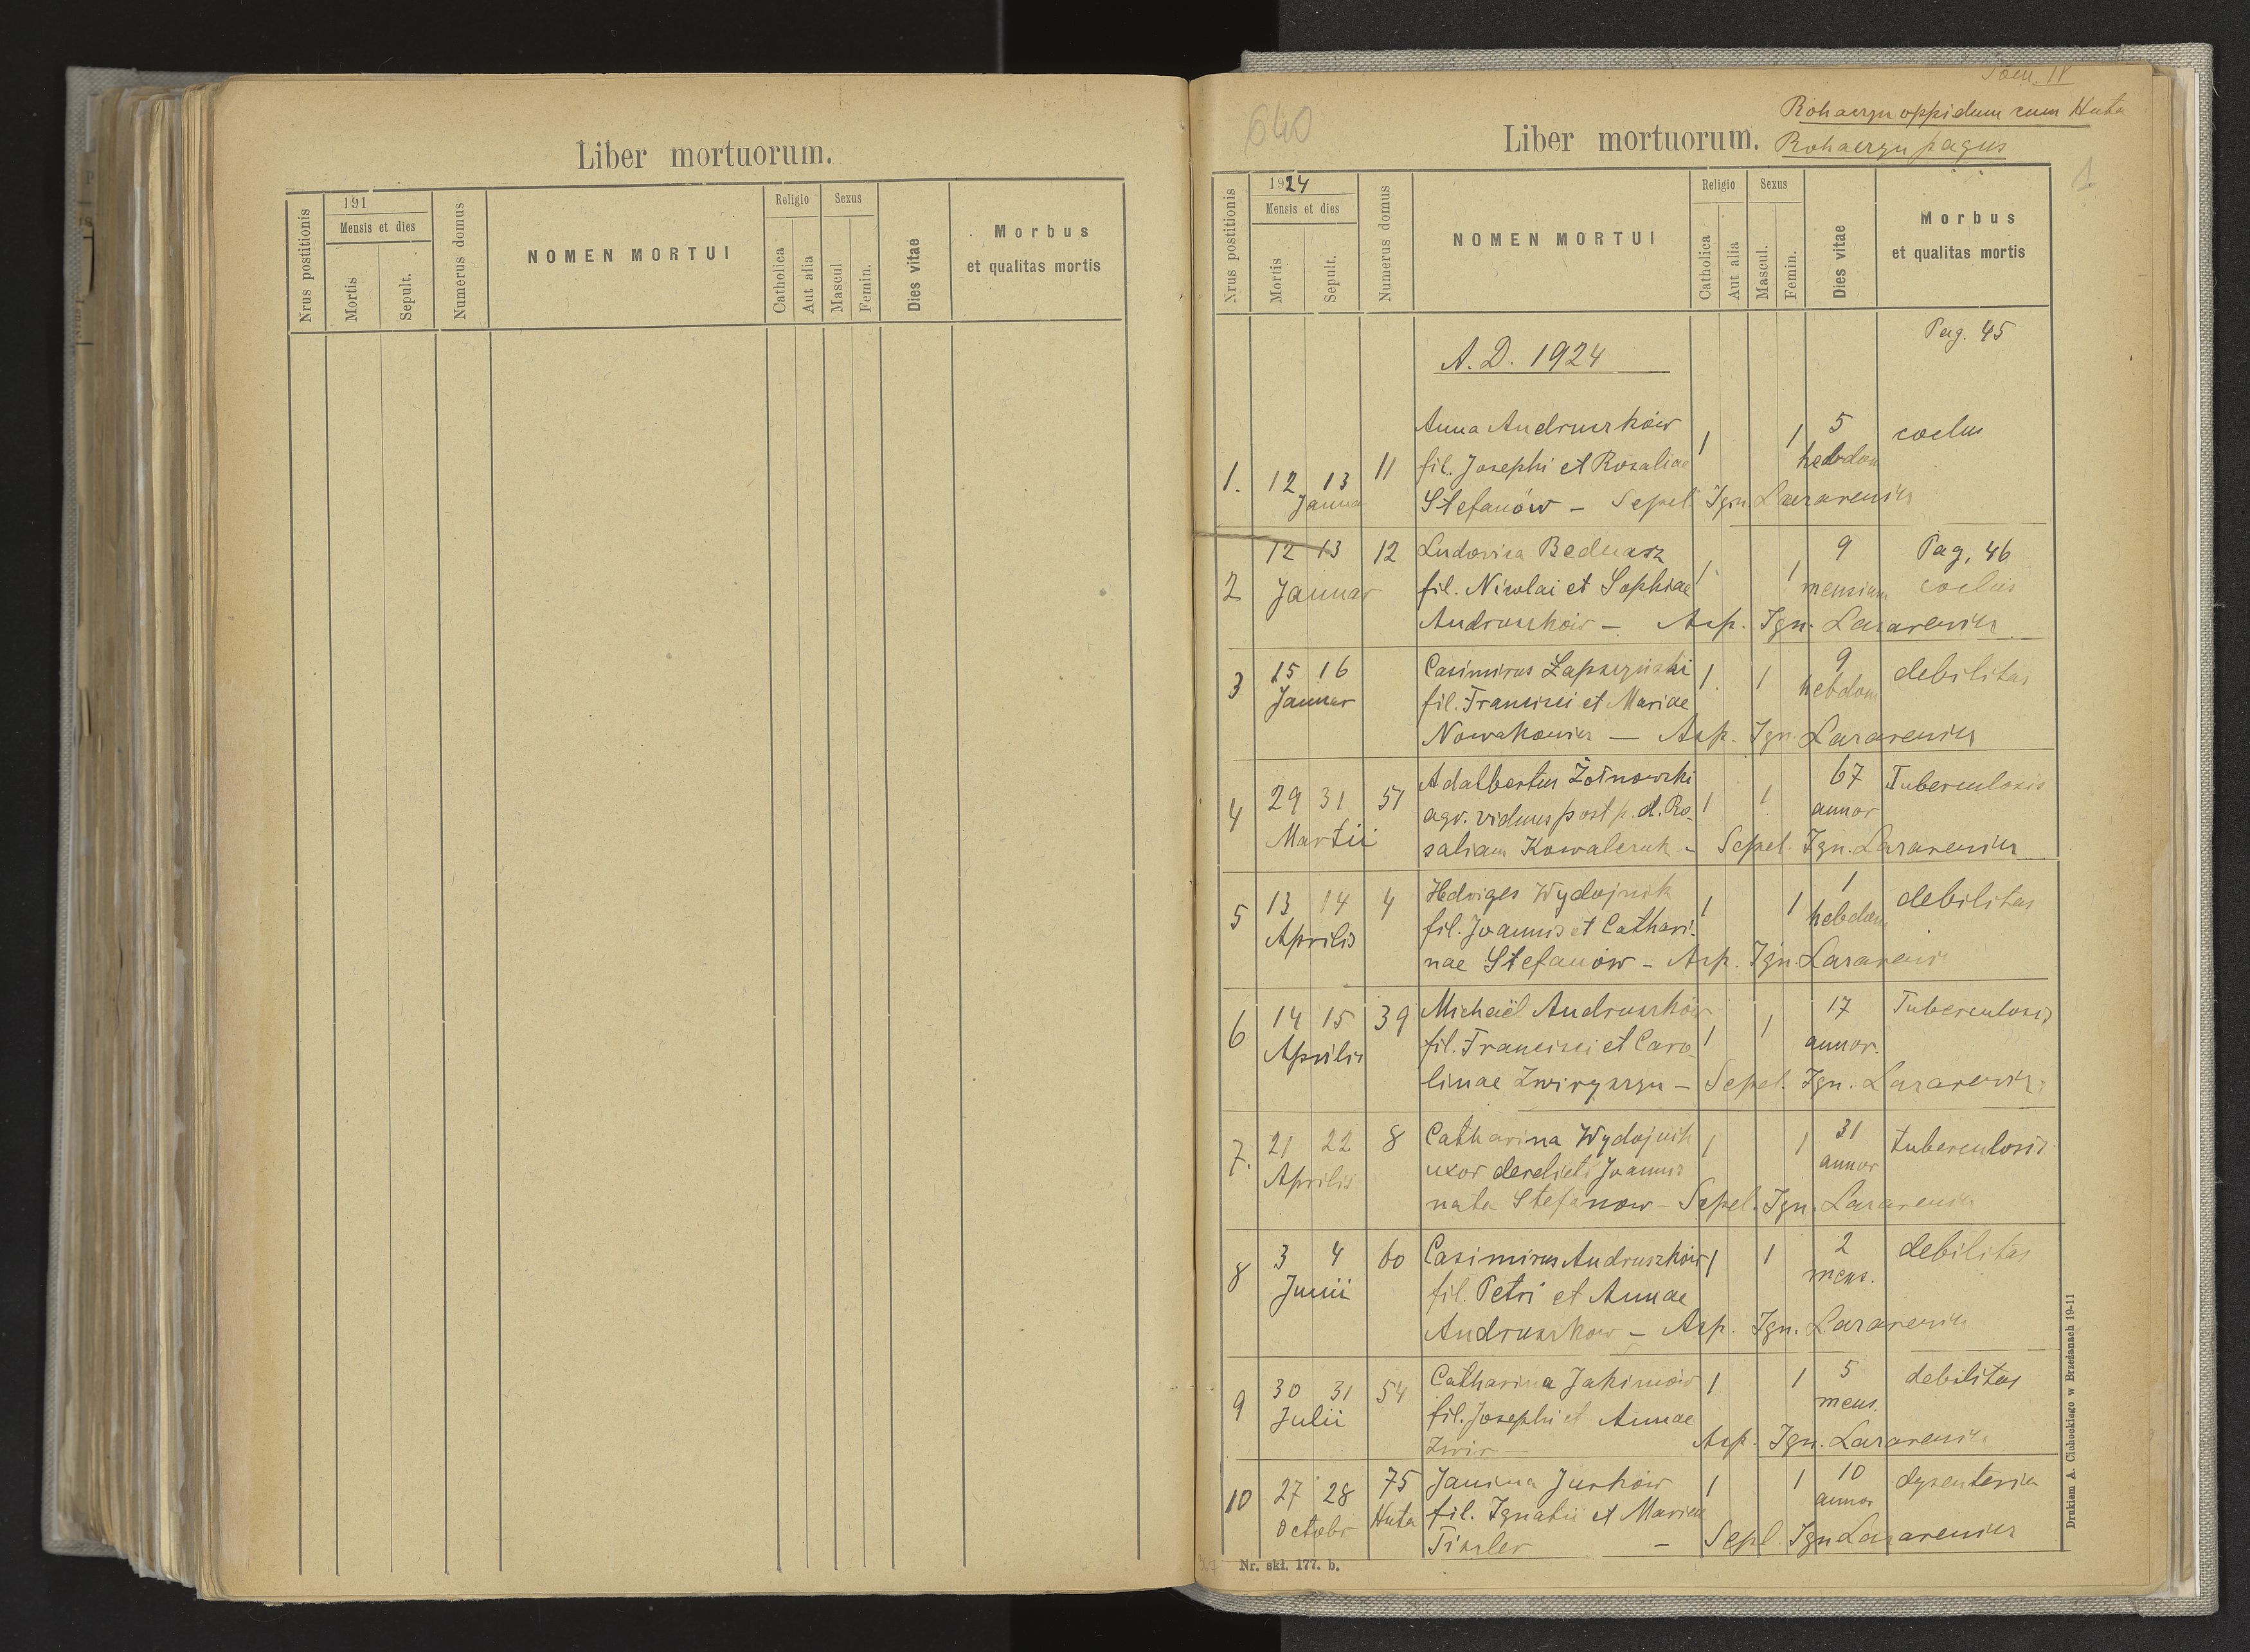 Liber mortuorum.
Nrus postitionis
191
Mensis et dies
Mortis
Sepult.
Numerus domus
NOMEN MORTUI
Religio
Catholica
Aut alia
Sexus
Mascul
Femin.
Dies vitae
Morbus
et qualitas mortis
Tom. IV
640
Rohaczyn oppidum cum Huta
Liber mortuorum. Rohaczyn pagus
1
Nrus postitionis
1924
Mensis et dies
Mortis
Sepult.
Numerus domus
NOMEN MORTUI
Religio
Catholica
Aut alia
Sexus
Mascul.
Femin.
Dies vitae
Morbus
et qualitas mortis
Pag. 45
A. D. 1924
Anna Andruszków 1 1 5 coclus
1. 12 13 11 fil. Josephi et Rosaliae hebdom
Janua Stefanów - Sepel. Ign. Lazarewicz
12 13 12 Ludovica Bednarz 9 Pag. 46
2 Januar fil. Nicolai et Sophiae 1 1 mensium coclus
Andruszków - Asp. Ign. Lazarewicz
3 15 16 Casimirus Łapszyński 1 1 9 debilitas
Januar fil. Francisci et Mariae hebdom
Nowakowicz - Asp. Ign. Lazarewicz
4 29 31 51 Adalbertus Żołnowski 67 Tuberculosis
Martii agr. viduus post p. d. Ro- 1 1 annor
saliam Kowalczuk - Sepel. Ign. Lazarewicz
5 13 14 4 Hedviges Wydojnik 1 1 1 debilitas
Aprilis fil. Joannis et Cathari- hebdom
nae Stefanów - Asp. Ign. Lazarewic
6 14 15 39 Michaël Andruszków 17 Tuberculosis
Aprilis fil. Francisci et Caro- 1 1 annor.
linae Zwiryszyn - Sepel. Ign. Lazarewicz
7. 21 22 8 Catharina Wydojnik 1 1 31 tuberculosis
Aprilis uxor derelicti Joannis annor
nata Stefanow - Sepel. Ign. Lazarewicz
8 3 4 60 Casimirus Andruszków 1 1 2 debilitas
Junii fil. Petri et Annae mens.
Andruszkow - Asp. Ign. Lazarewicz
9 30 31 54 Catharina Jakimów 1 1 5 debilitas
Julii fil. Josephi et Annae mens.
Zwir - Asp. Ign. Lazarewicz
10 27 28 75 Janina Jurków 1 1 10 dysenteria
Octobr Huta fil. Ignatii et Mariae annor
Tiszler - Sepl. Ign Lazarewicz
Nr. skł. 177. b.
Drukiem A. Cichockiego w Brzeżanach 19-11